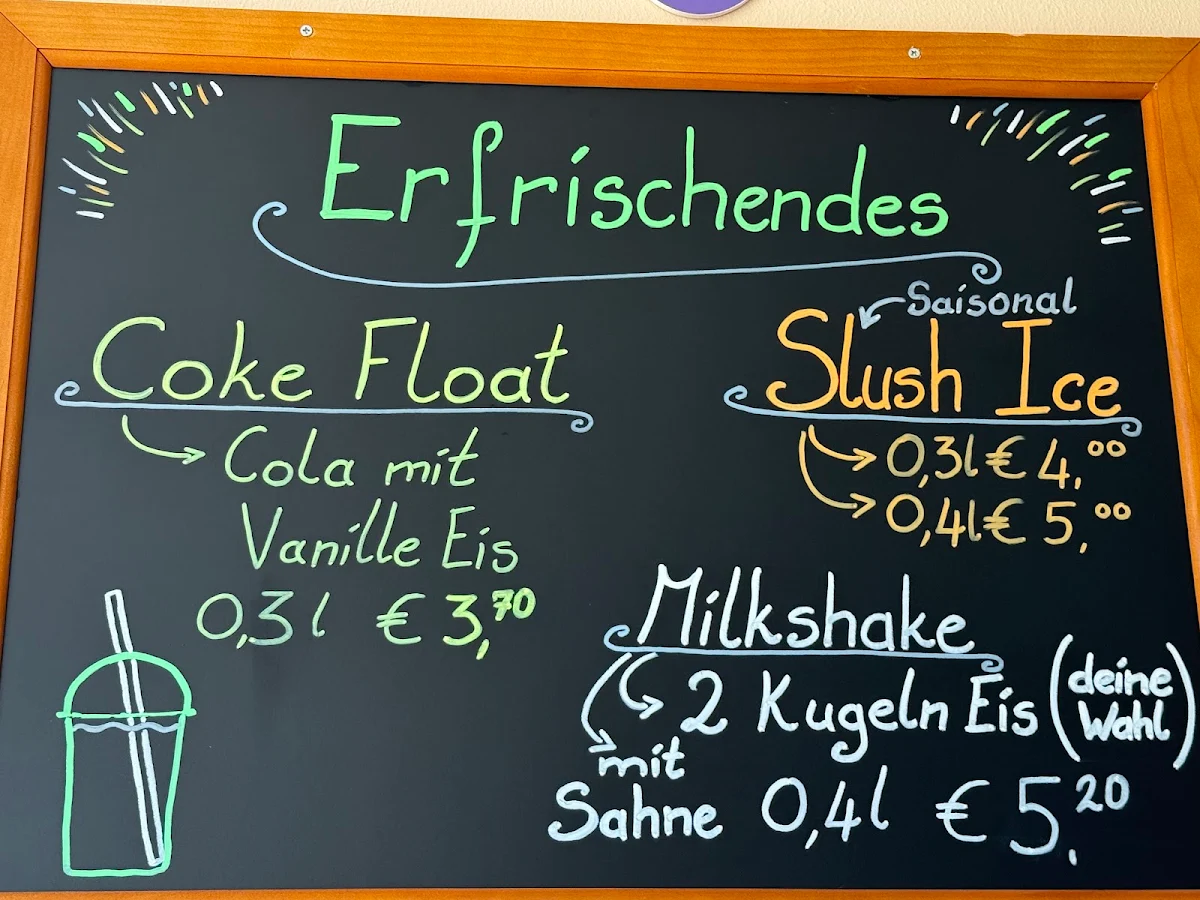 Erfrischendes
Coke Float
Cola mit
Vanille Eis
0,3 l € 3,70
Saisonal
Slush Ice
0,3l € 4,00
0,4l € 5,00
Milkshake
2 Kugeln Eis (deine
Wahl)
mit
Sahne 0,4l € 5,20